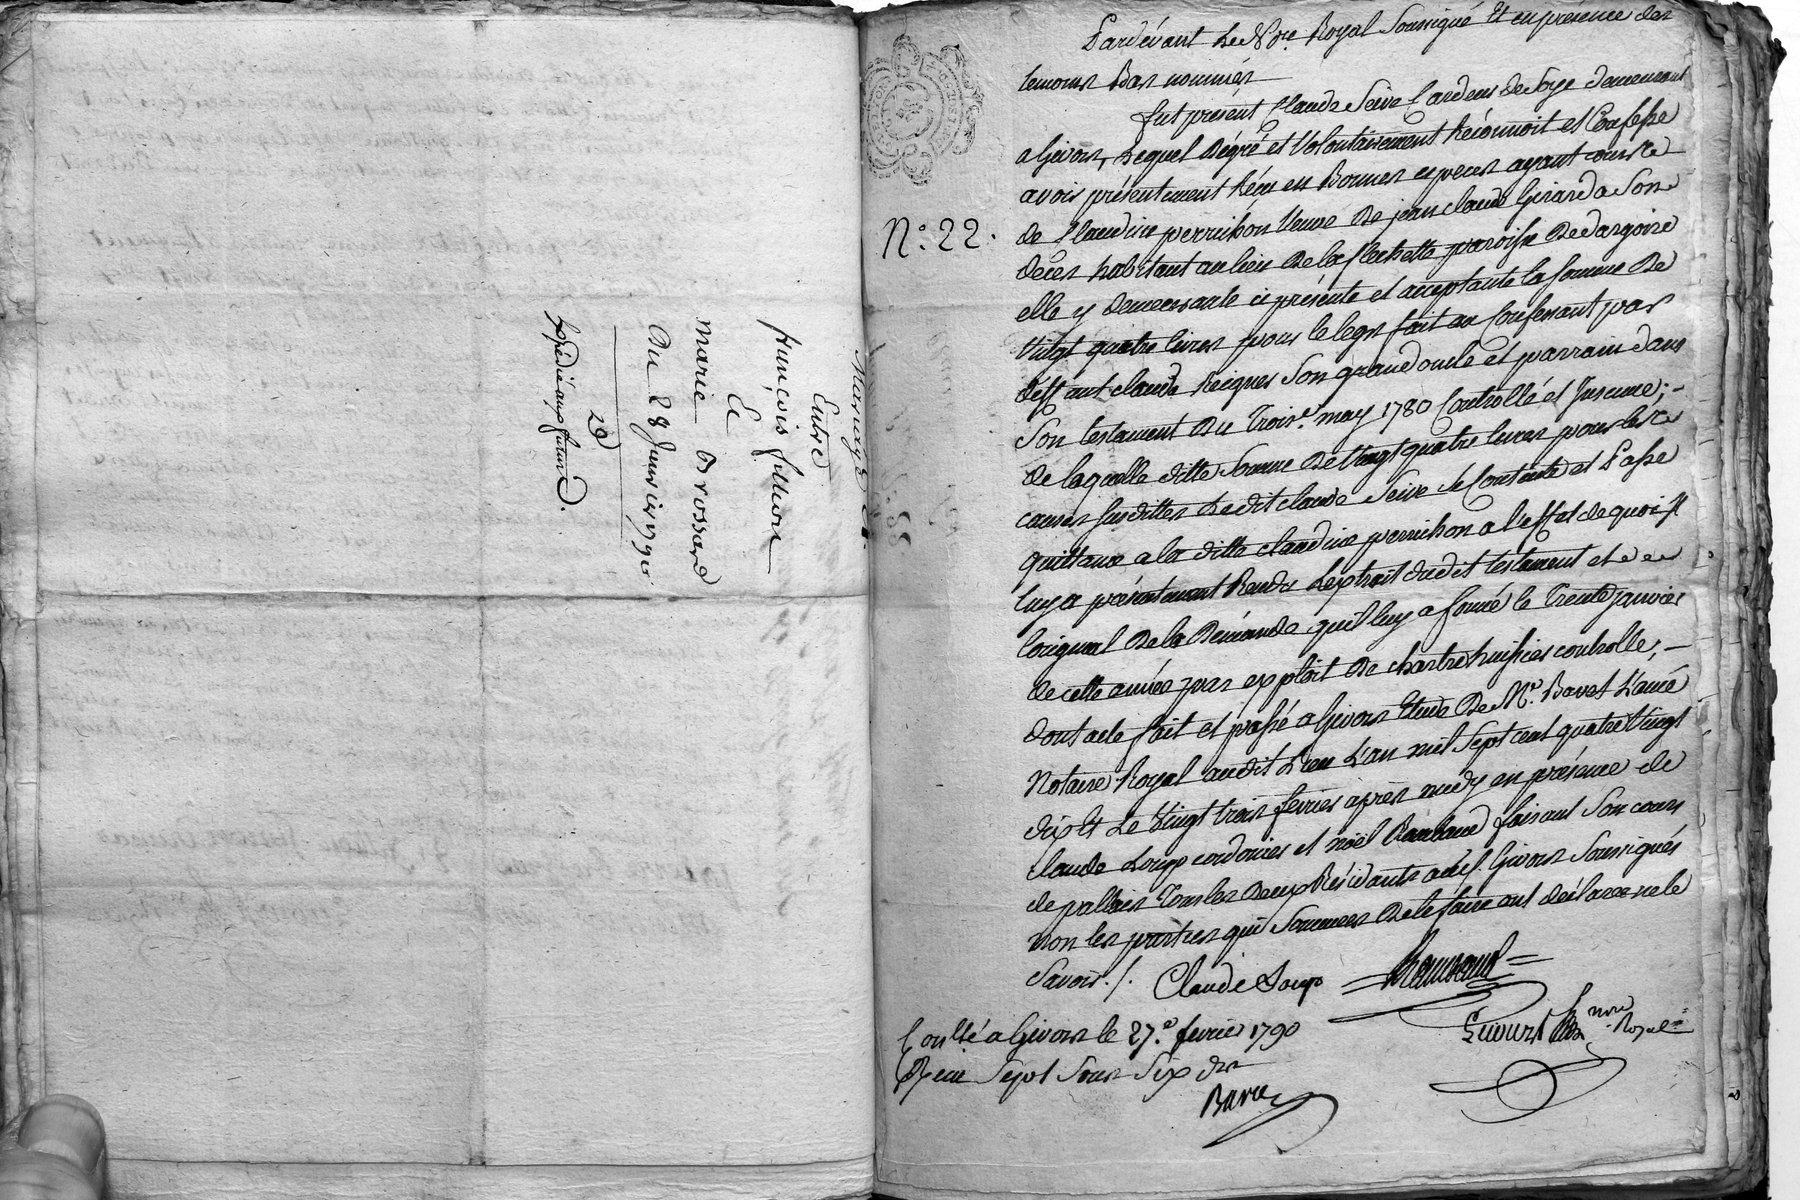 Mariage
Entre
François fillion
Et
marie Brossard
Du 28 Janvier 1790
28
Expédié aux futurs.
N.º 22.
Pardevant Le No.re Royal Soussigné Et en presence des
temoins Bas nommés
fut présent Claude Seive Cardeur de Soye demeurant
a Givors, Lequel Dégré et Volontairement Réconnoit et Confesse
avoir présentement Réçu en Bonnes especes ayant cours
de Claudine perrichon Veuve De jean claude Girard a Son
décès habitant au lieu De la flechette paroisse De dargoire
elle y demeurante ci présente et acceptante la somme De
Vingt quatre livres pour le legs fait au Confessant par
déffunt claude Son grand oncle et parrain dans
Son testament Du Trois.e may 1780 Controllé et Insinué; -
de laquelle ditte Somme De Vingt quatre livres pour les
causes susdittes Ledit claude Seive Se Contente et Passe
quittance a la ditte claudine perrichon a l'effet de quoi il
luy a présentement Rendu L'extrait dudit testament et
loriginal De la Démande quil luy a formé le Trente janvier
de cette année par exploit De chartre huissier controllé; -
dont acte fait et passé a Givors Etude De M.e Bavet L'ainé
Notaire Royal audit Lieu L'an mil Sept cent quatre Vingt
dix Et Le Vingt trois fevrier après midy en présence de
Claude Loup cordonier et noël Rambaud faisant Son cours
de pallais Tous les Deux Résidants aud.t Givors Soussignés
non les parties qui Sommées De le faire ont déclaré ne le
Savoir. /. Claude Loup Rambaud
no.re
Royal
Con.llé a Givors le 27.e fevrier 1790
Reçu Sept Sous Six d.rs